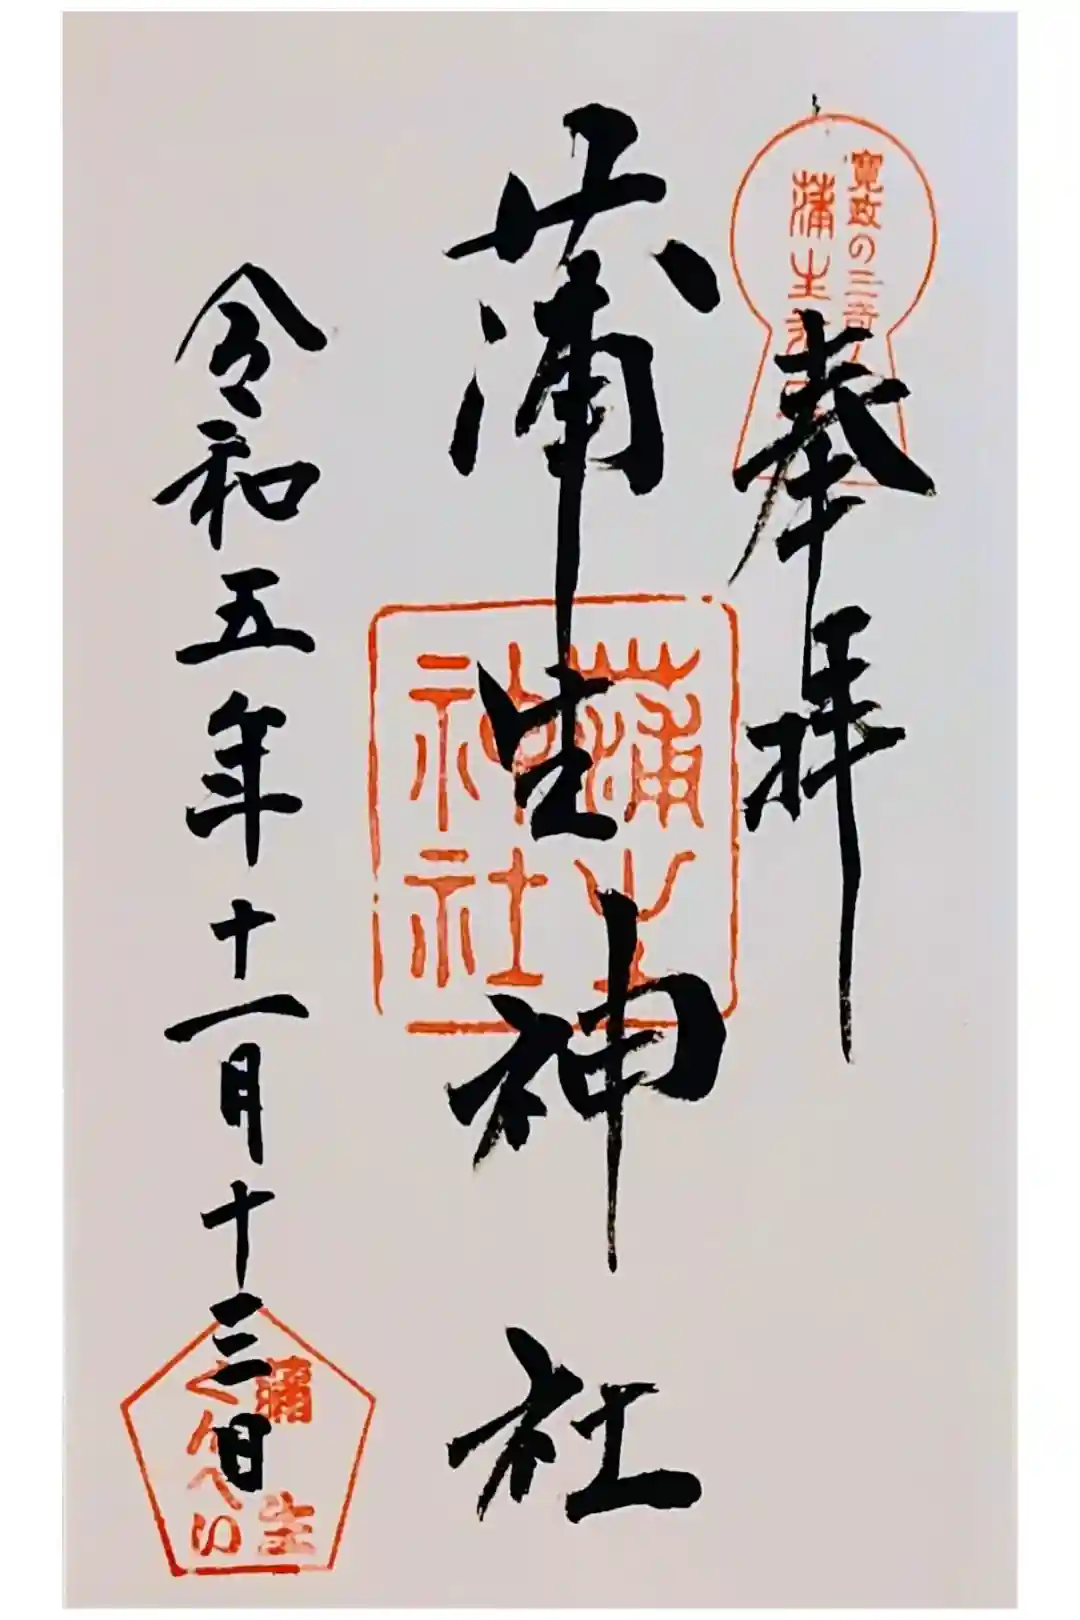 奉拝
寛政の三奇人
蒲生
蒲生神社
蒲生
神社
令和五年十一月十三日
蒲生
くんぺい